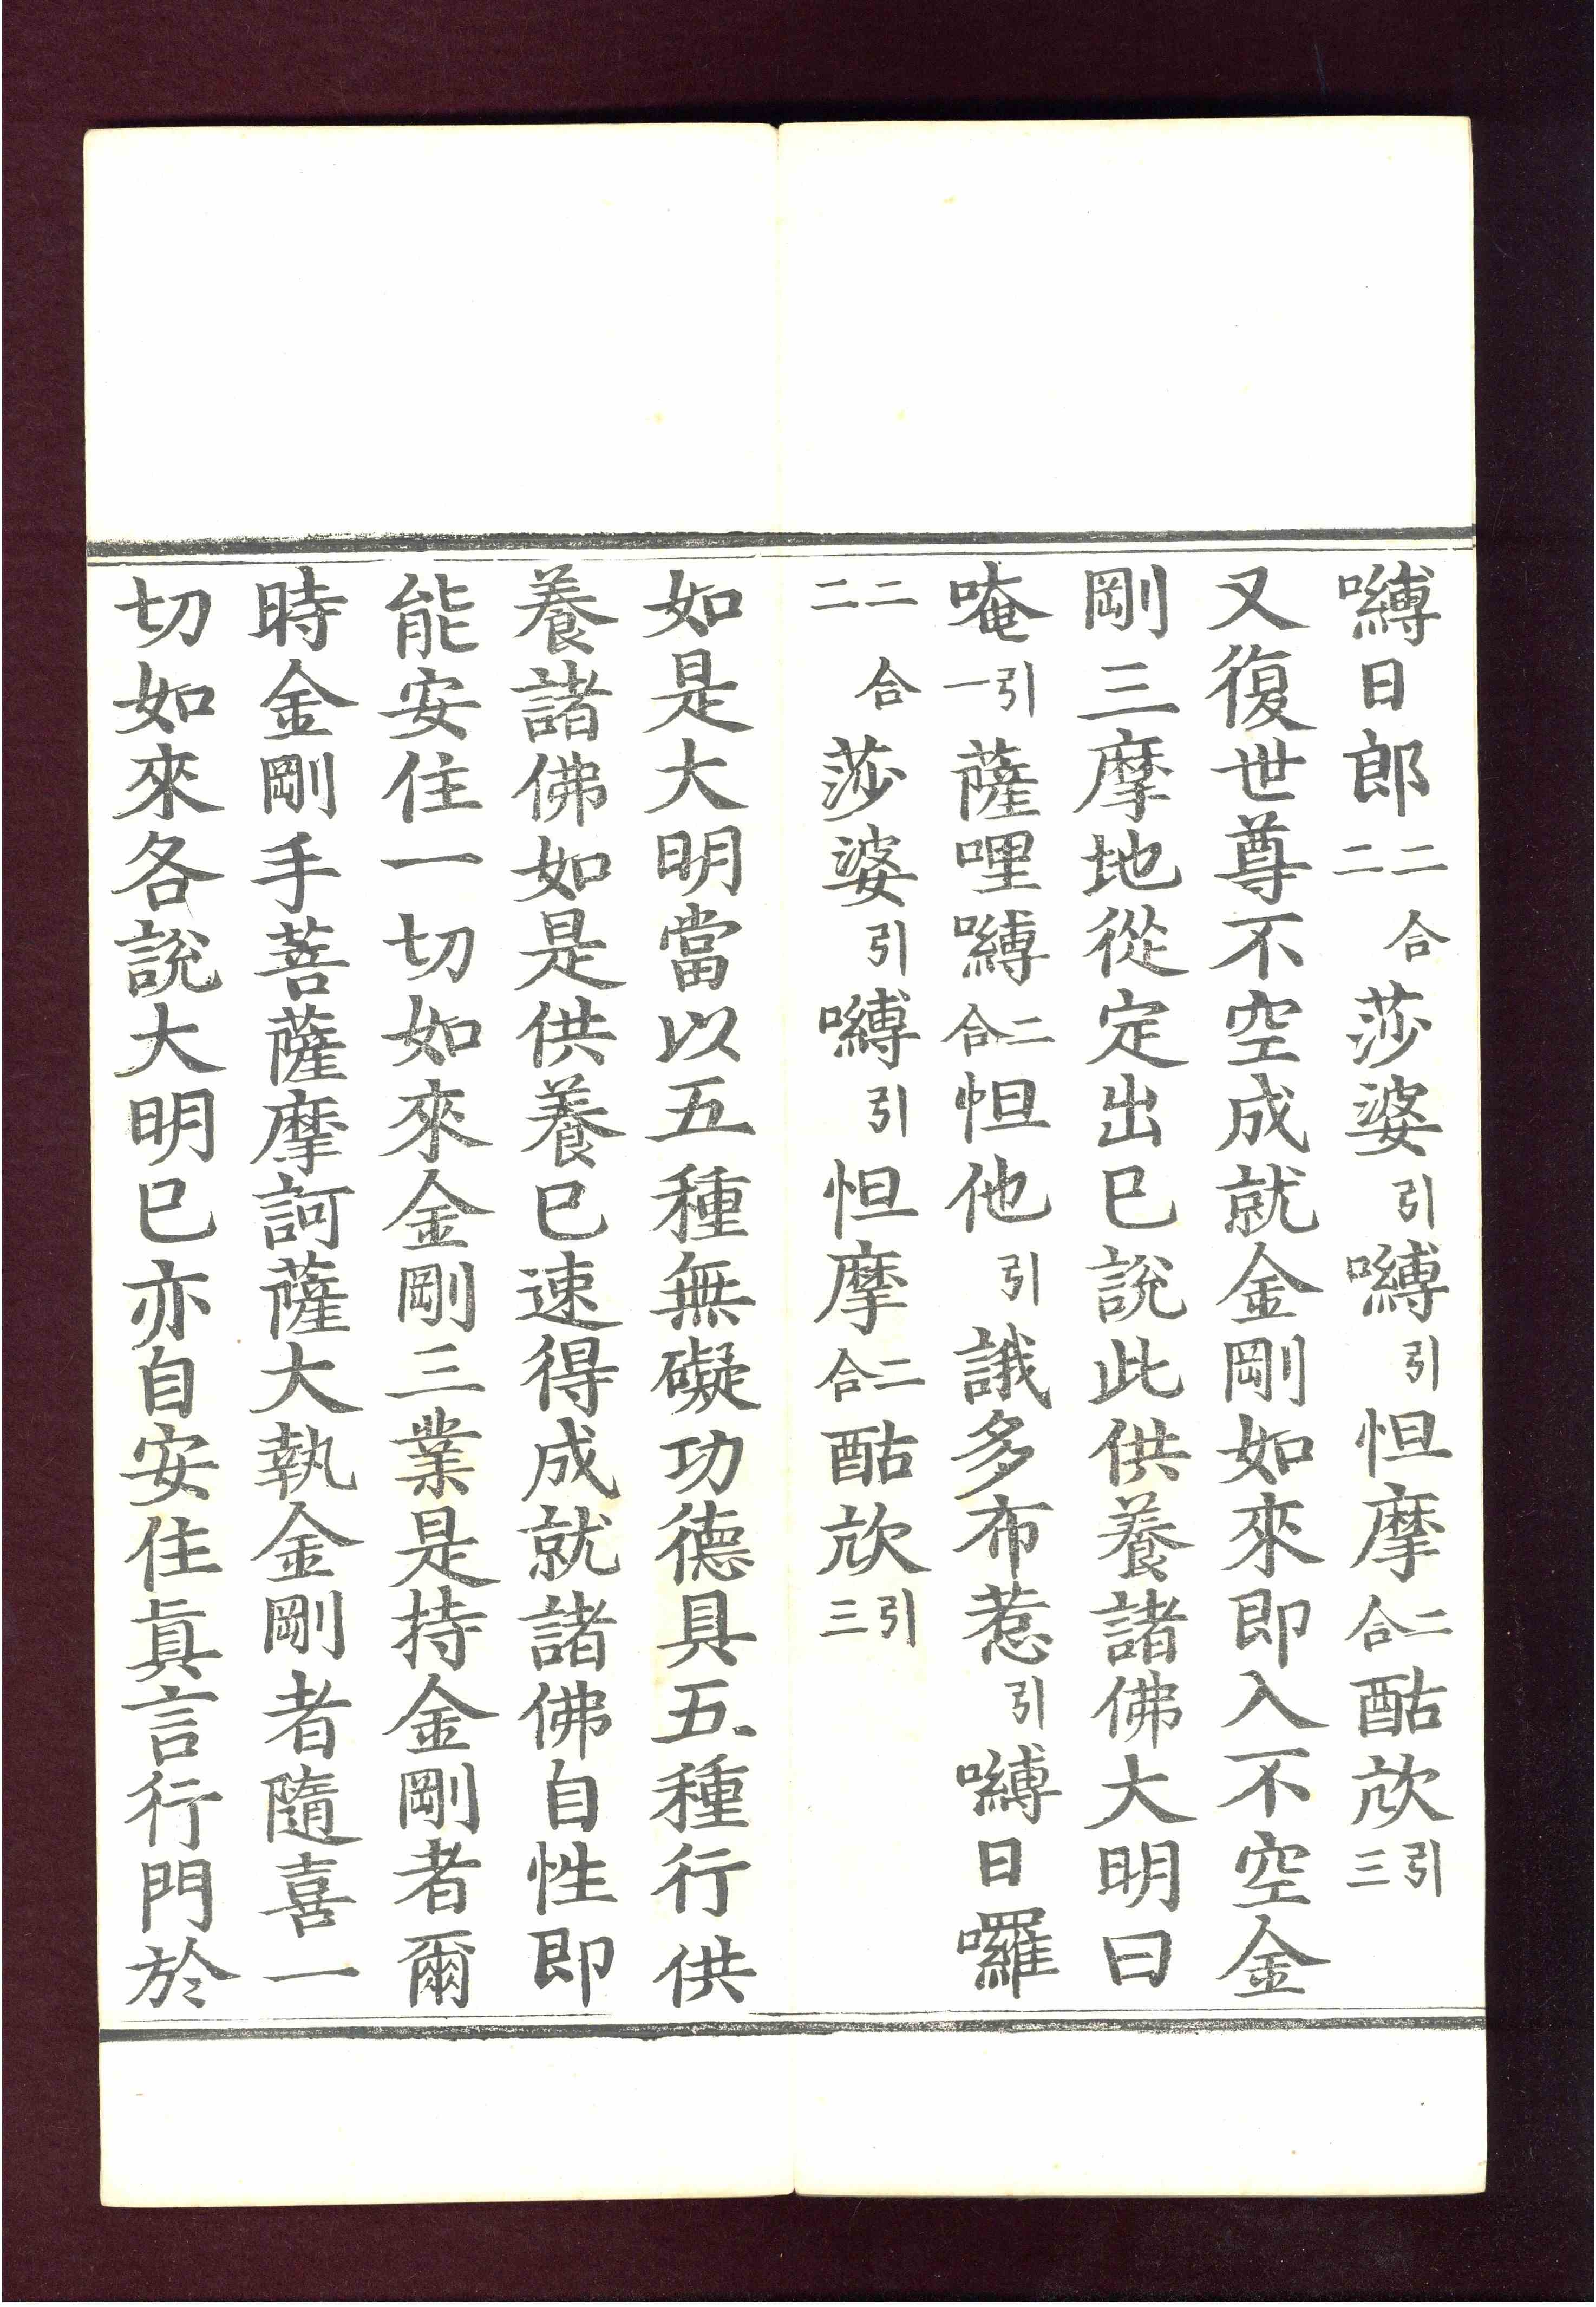 嚩日郎二合二莎婆引嚩引怛摩二合酤㰠引三
又復世尊不空成就金剛如來即入不空金
剛三摩地從定出已說此供養諸佛大明曰
唵引一薩哩嚩二合怛他引誐多布惹引嚩日囉
二合二莎婆引嚩引怛摩二合酤㰠引三
如是大明當以五種無礙功德具五種行供
養諸佛如是供養已速得成就諸佛自性即
能安住一切如來金剛三業是持金剛者爾
時金剛手菩薩摩訶薩大執金剛者隨喜一
切如來各說大明已亦自安住眞言行門於